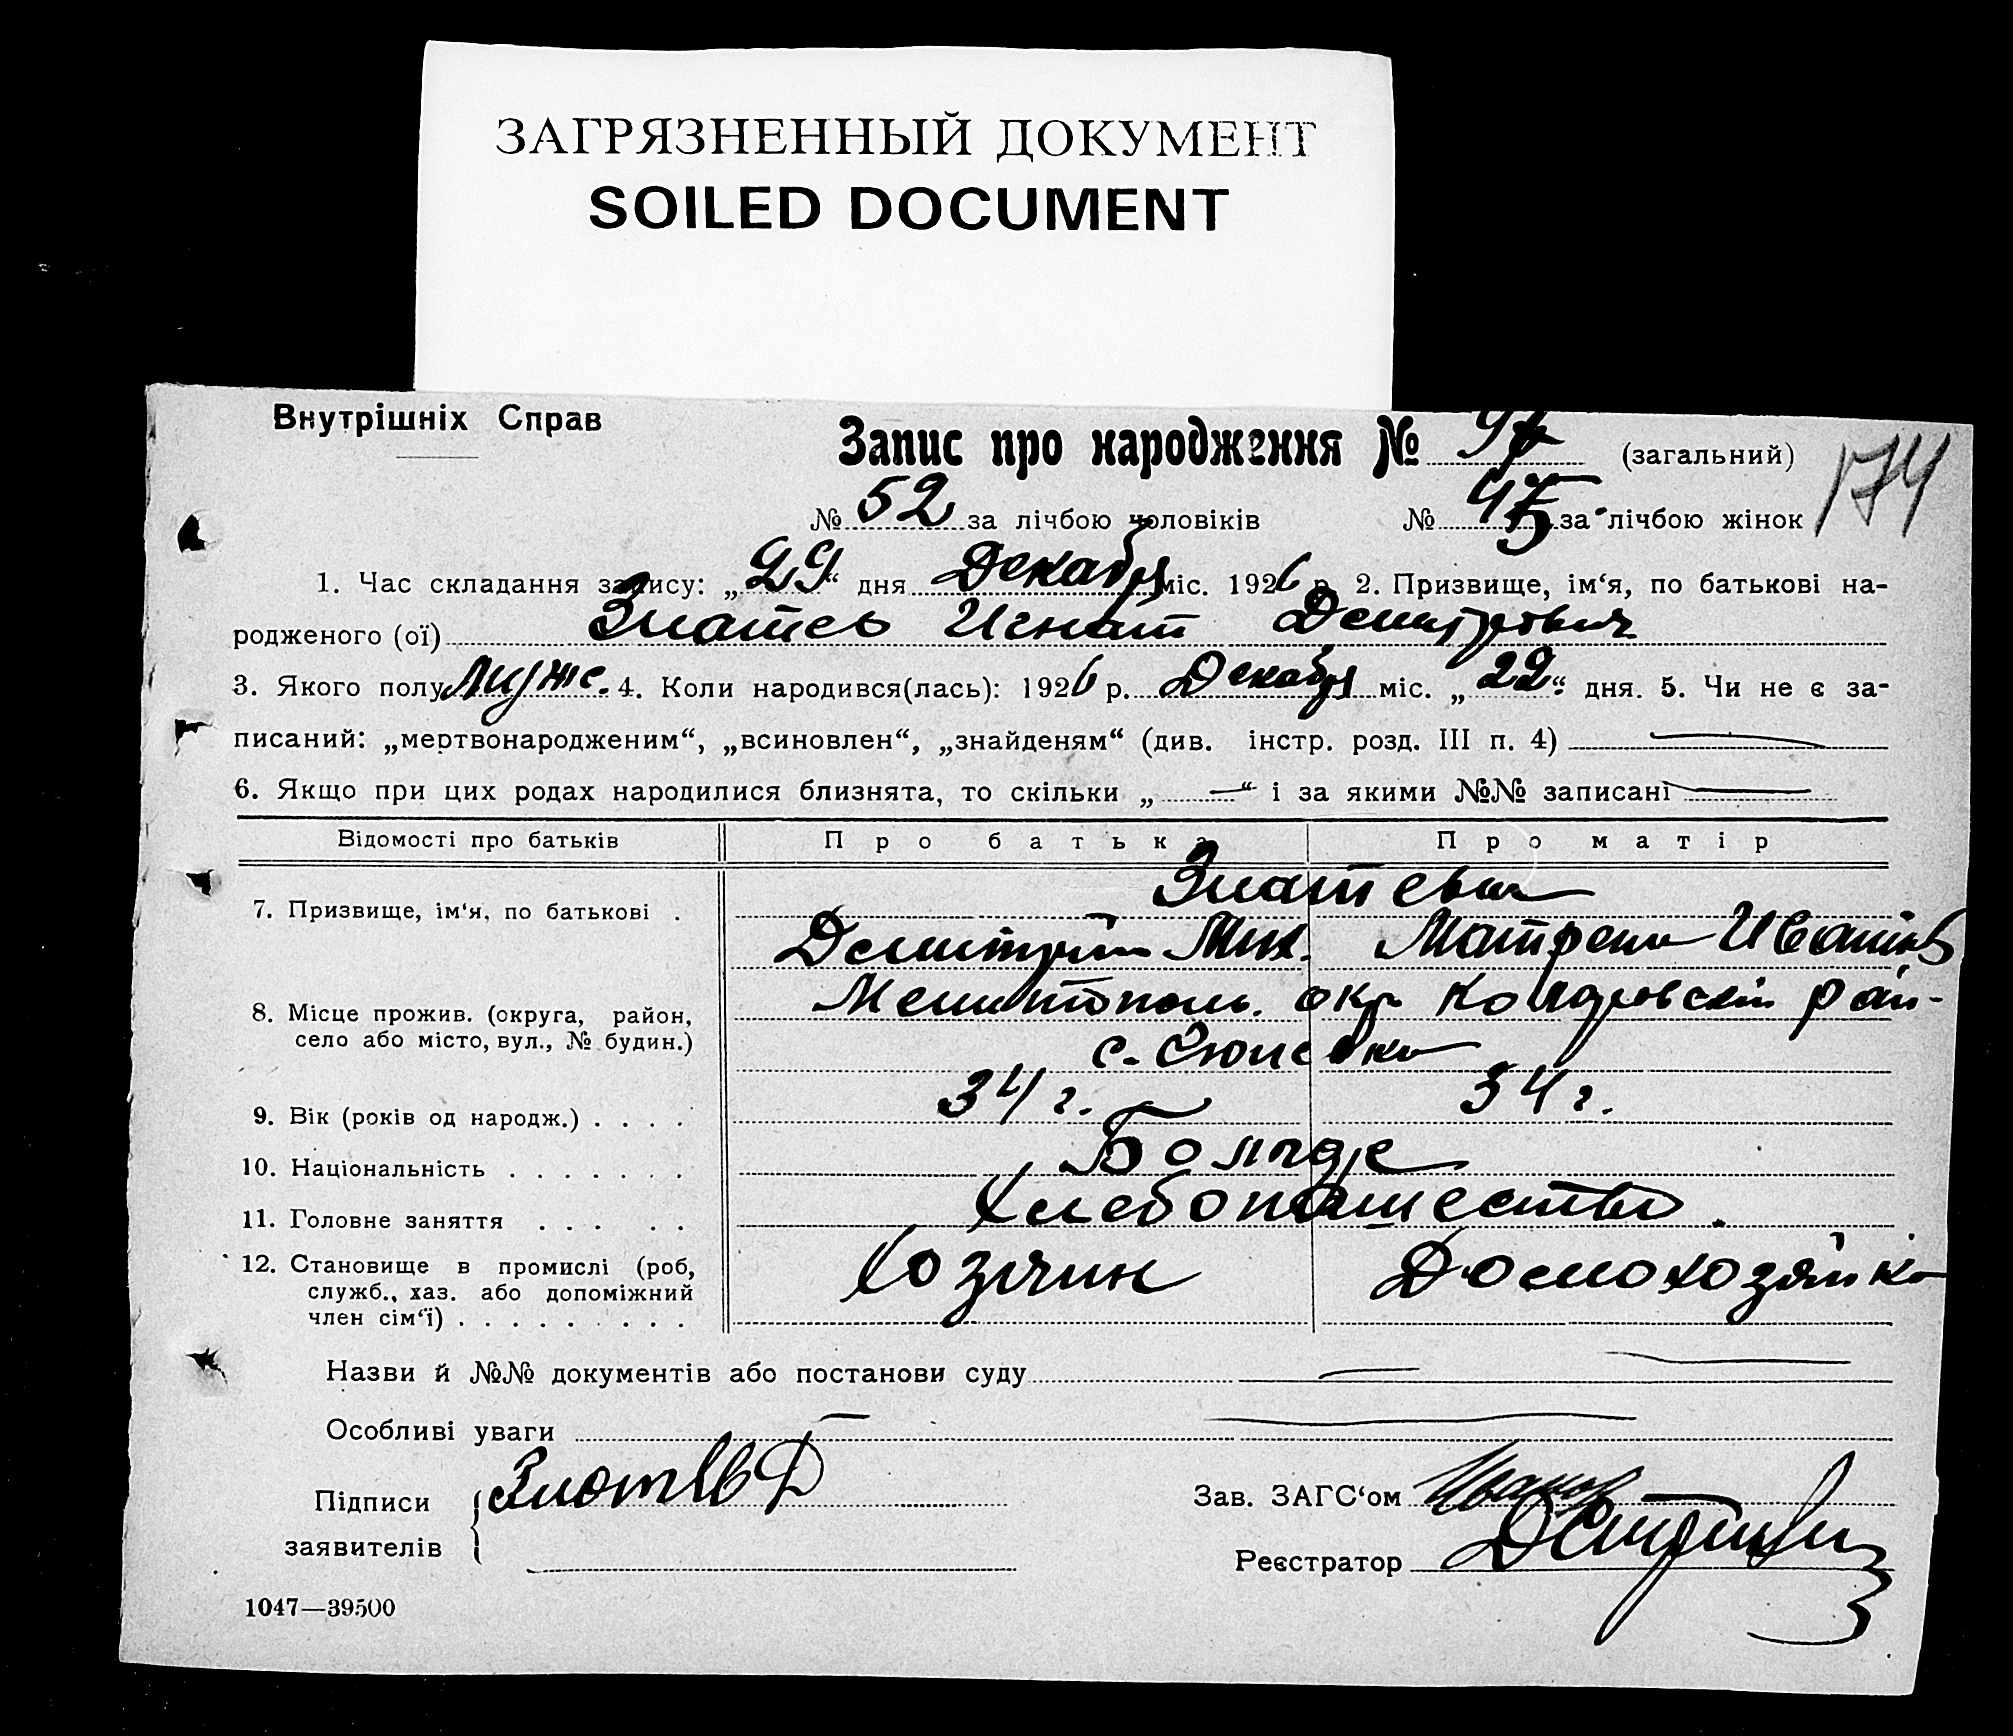 ЗАГРЯЗНЕННЫЙ ДОКУМЕНТ
SOILED DOCUMENT
Внутрішніх Справ
Запис про народження № 97 (загальний) 174
№ 52 за лічбою чоловіків № 45 за лічбою жінок
1. Час складання запису: „29“ дня Декабря міс. 1926 р. 2. Призвище, ім‘я, по батькові на-
родженого (ої) Златев Игнат Дмитрович
3. Якого полу Муже. 4. Коли народився(лась): 1926 р. Декабря міс. „22“ дня. 5. Чи не є за-
писаний: „мертвонародженим“, „всиновлен“, „знайденям“ (див. інстр. розд. III п. 4) —
6. Якщо при цих родах народилися близнята, то скільки „—“ і за якими №№ записані —
Відомості про батьків Про батька Про матір
7. Призвище, ім‘я, по батькові . Златевы
Дмитрий Мих. Матрена Иванов
8. Місце прожив. (округа, район, село або місто, вул., № будин.) Мелитополь. окр рай-
с.
9. Вік (років од народж.) . . . . 34 г. 34 г.
10. Національність . . . . . . . Болгаре
11. Головне заняття . . . . . Хлебопашество.
12. Становище в промислі (роб, служб., хаз. або допоміжний член сім‘ї) . . . . . . . . . Хозяин Домохозяйка
Назви й №№ документів або постанови суду —
Особливі уваги —
Підписи заявителів Златев Д
Зав. ЗАГС‘ом Иванов
Реєстратор
1047—39500